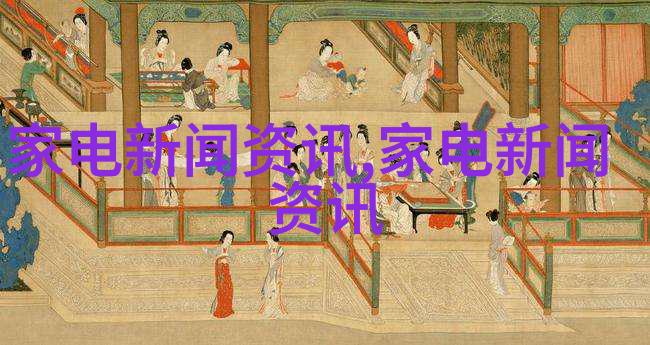 家电新闻资讯,家电新闻
资讯